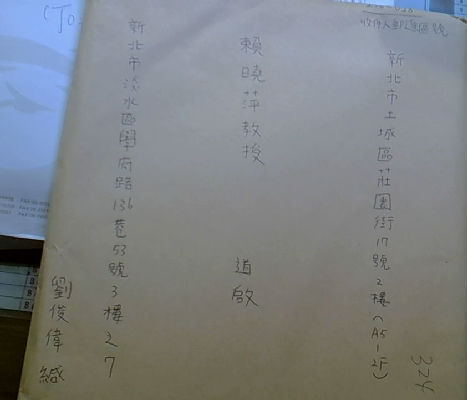 收件人郵遞區號
新北市土城區莊園街17號2樓(A5-2F)
324
賴曉萍教授
道啟
新北市淡水區學府路136巷53號3樓之7
劉俊偉緘